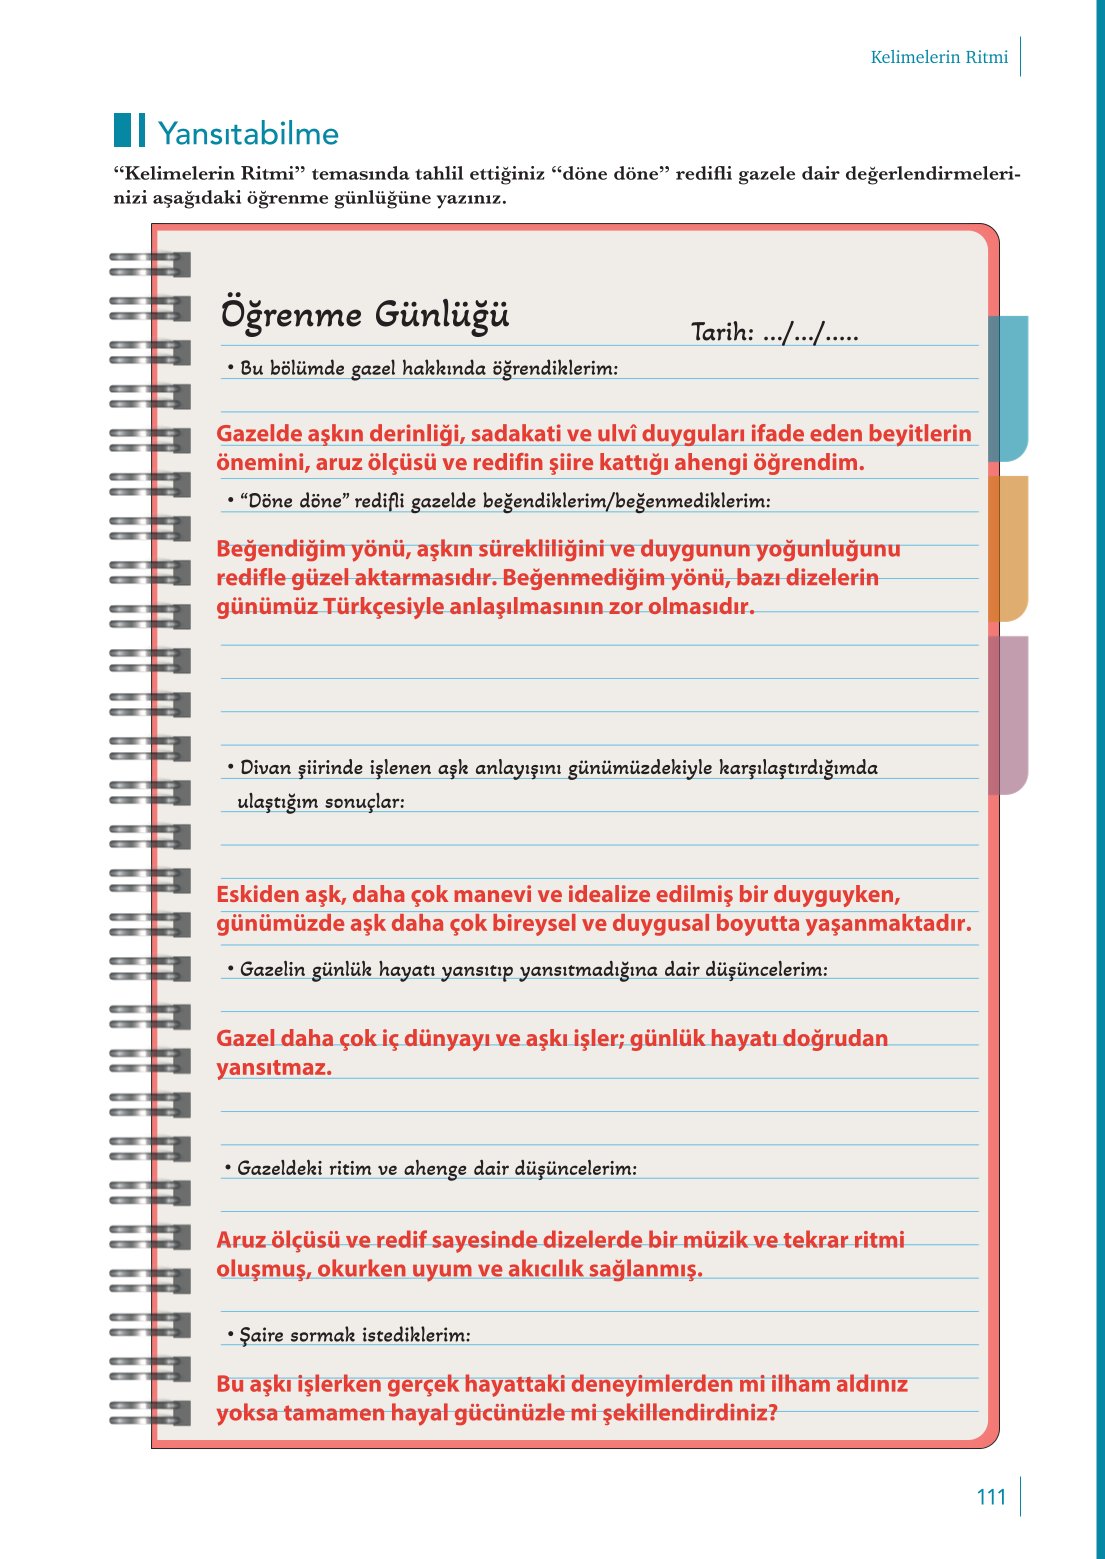 Kelimelerin Ritmi
Yansıtabilme
“Kelimelerin Ritmi” temasında tahlil ettiğiniz “döne döne” redifli gazele dair değerlendirmeleri-
nizi aşağıdaki öğrenme günlüğüne yazınız.
Öğrenme Günlüğü
Tarih: .../.../.....
• Bu bölümde gazel hakkında öğrendiklerim:
Gazelde aşkın derinliği, sadakati ve ulvî duyguları ifade eden beyitlerin
önemini, aruz ölçüsü ve redifin şiire kattığı ahengi öğrendim.
• “Döne döne” redifli gazelde beğendiklerim/beğenmediklerim:
Beğendiğim yönü, aşkın sürekliliğini ve duygunun yoğunluğunu
redifle güzel aktarmasıdır. Beğenmediğim yönü, bazı dizelerin
günümüz Türkçesiyle anlaşılmasının zor olmasıdır.
• Divan şiirinde işlenen aşk anlayışını günümüzdekiyle karşılaştırdığımda
ulaştığım sonuçlar:
Eskiden aşk, daha çok manevi ve idealize edilmiş bir duyguyken,
günümüzde aşk daha çok bireysel ve duygusal boyutta yaşanmaktadır.
• Gazelin günlük hayatı yansıtıp yansıtmadığına dair düşüncelerim:
Gazel daha çok iç dünyayı ve aşkı işler; günlük hayatı doğrudan
yansıtmaz.
• Gazeldeki ritim ve ahenge dair düşüncelerim:
Aruz ölçüsü ve redif sayesinde dizelerde bir müzik ve tekrar ritmi
oluşmuş, okurken uyum ve akıcılık sağlanmış.
• Şaire sormak istediklerim:
Bu aşkı işlerken gerçek hayattaki deneyimlerden mi ilham aldınız
yoksa tamamen hayal gücünüzle mi şekillendirdiniz?
111